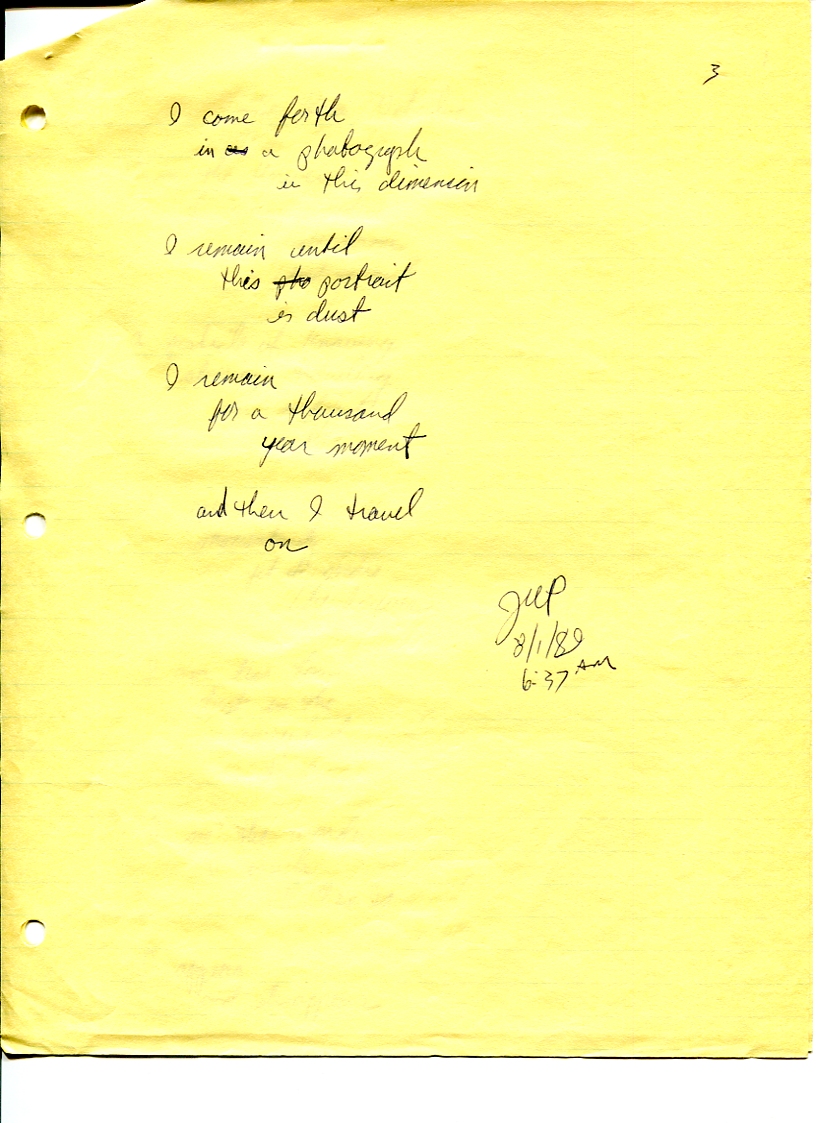 3
I come forth
in as a photograph
in this dimension
I remain until
this pho portrait
is dust
I remain
for a thousand
year moment
and then I travel
on
8/1/89
6:37 AM